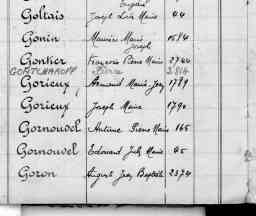 Eugène
Goltais Joseph Luis Marie 44
Gonin Maurice Marie 1584
Joseph
Gontier François Rene Marie 2744
GONTCHAROFF Pierre 2814
Gorieux Armand Marie Jos 1789
Gorieux Joseph Marie 1790
Gornouvel Antoine Pierre Marie 165
Gornouvel Edouard Jules Marie 45
Goron August Jean Baptiste 2374